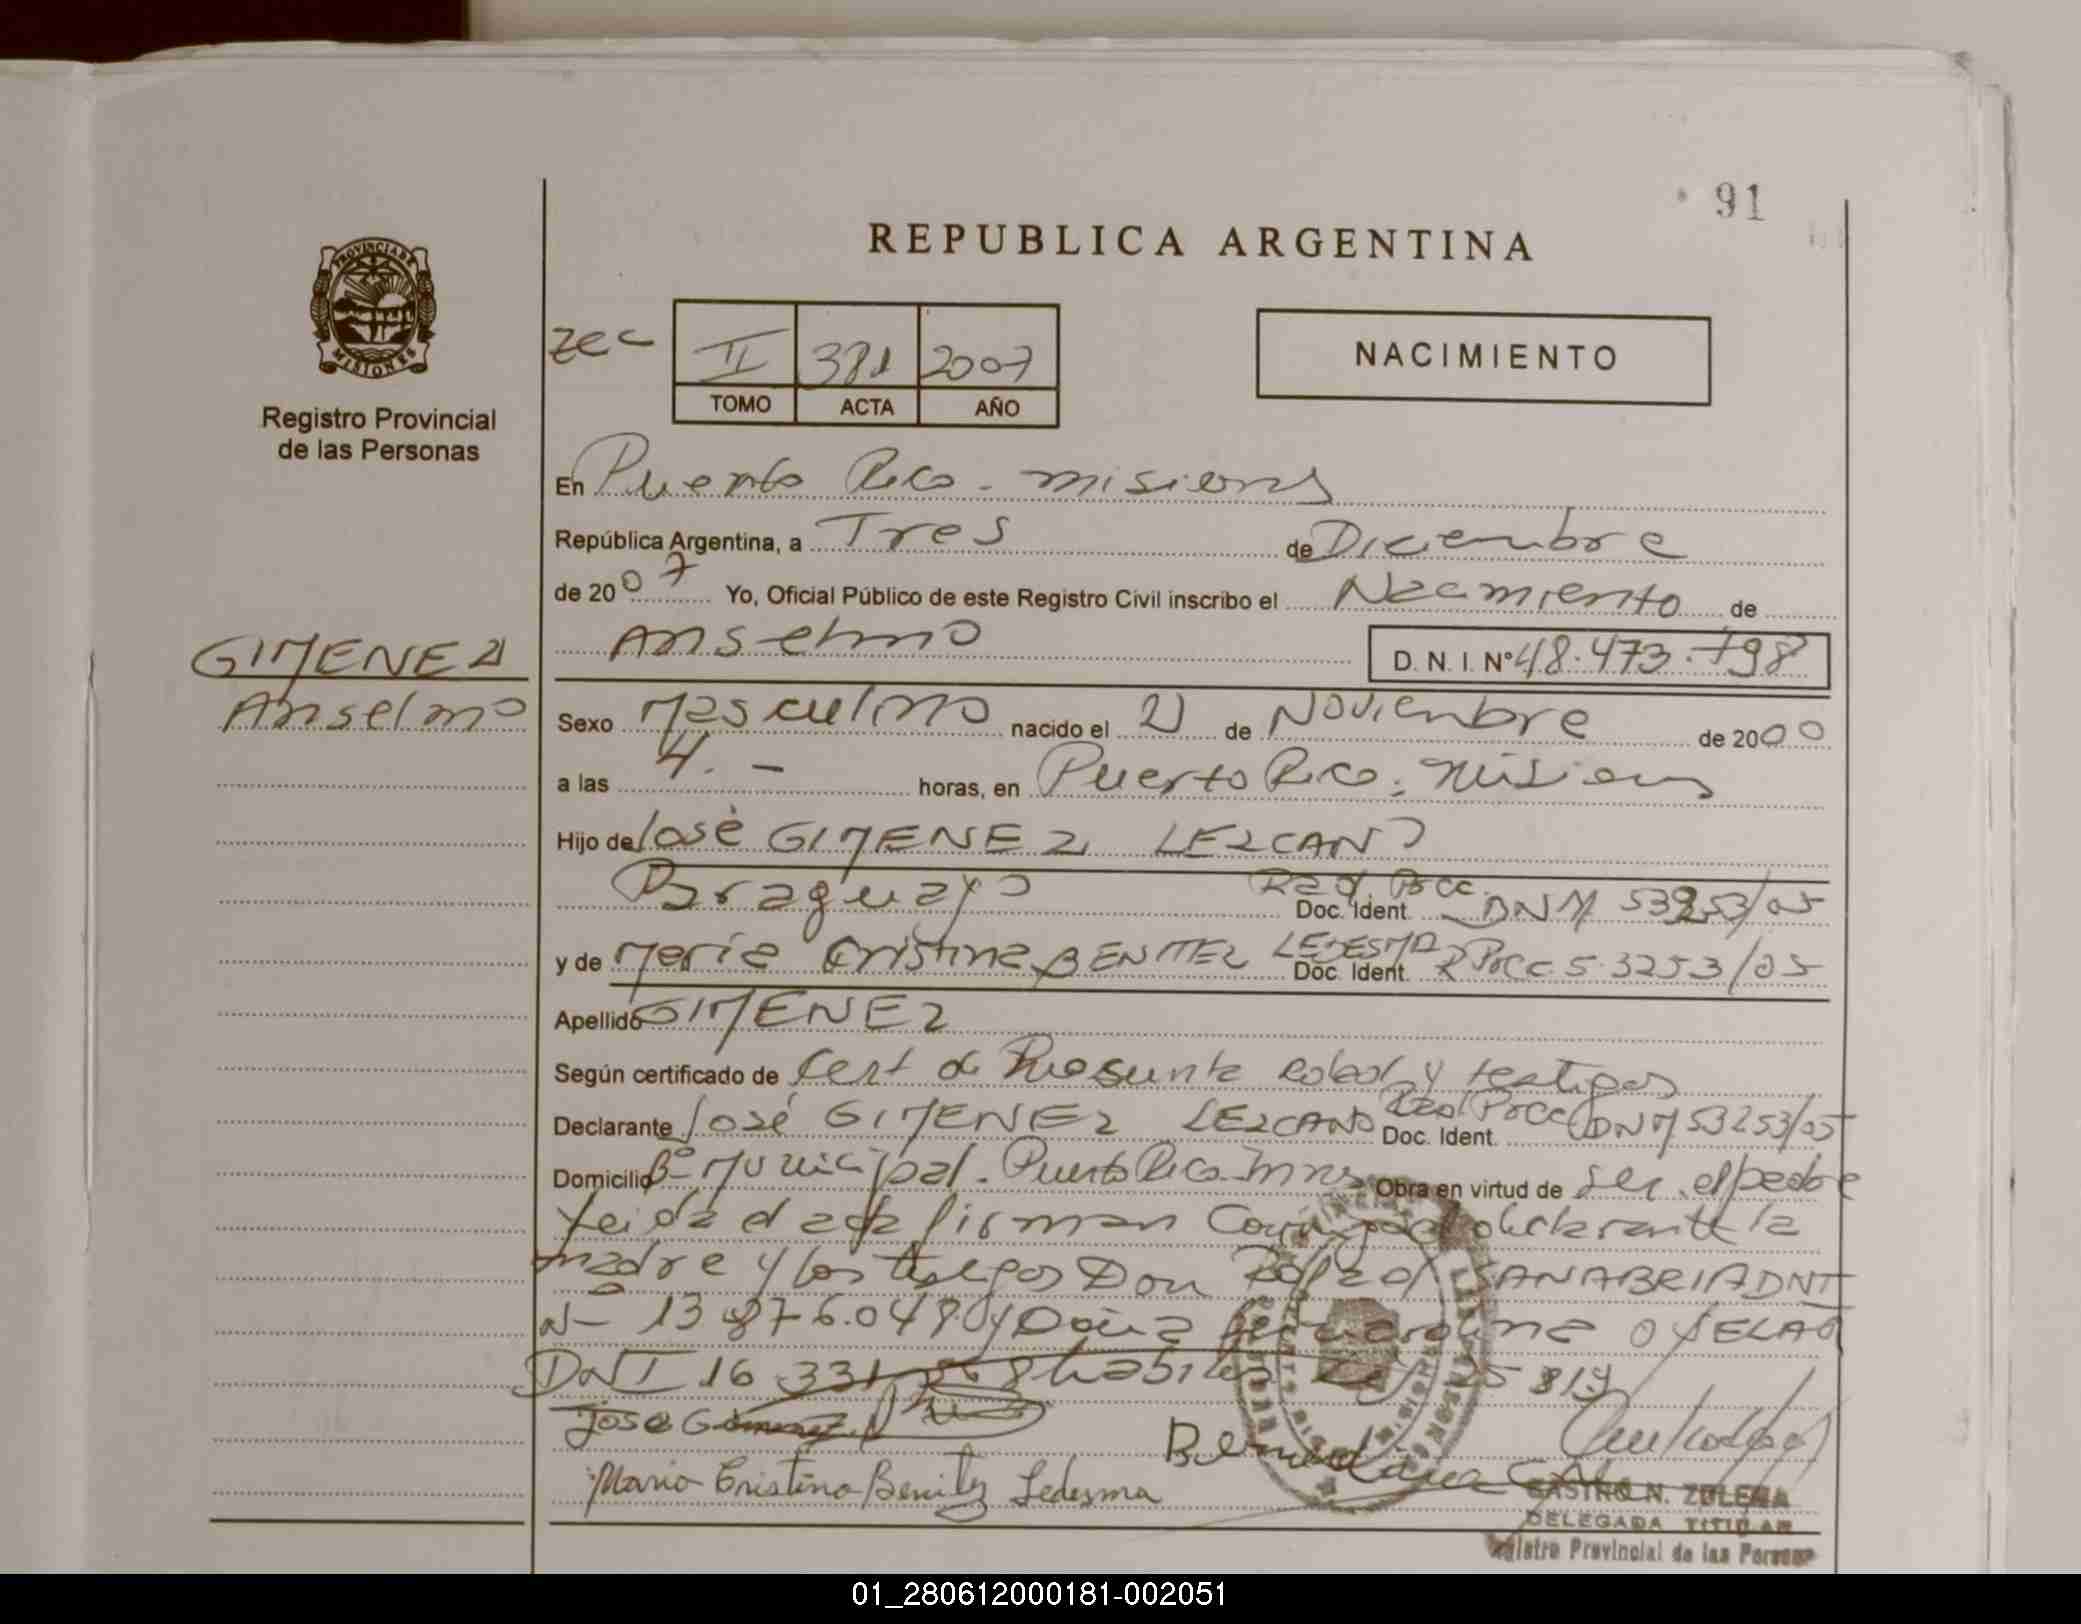 91
REPUBLICA ARGENTINA
PROVINCIA DE MISIONES
Registro Provincial
de las Personas
II 381 2007
TOMO ACTA AÑO
NACIMIENTO
En Puerto Rico - Misiones
República Argentina, a Tres de Diciembre
de 2007 Yo, Oficial Público de este Registro Civil inscribo el Nacimiento de
Anselmo D. N. I. Nº 48.473.798
GIMENEZ
Anselmo
Sexo Masculino nacido el 21 de Noviembre de 2000
a las 4. - horas, en Puerto Rico. Misiones
Hijo de José GIMENEZ LEZCANO
Paraguayo Rad. Prec. Doc. Ident. DNM 53253/05
y de María Cristina BENITEZ LEDESMA Doc. Ident. R Prec. 53253/05
Apellido GIMENEZ
Según certificado de Cert de Presunta edad y testigos
Declarante José GIMENEZ LEZCANO Rad Prec Doc. Ident. DNM 53253/05
Domicilio Bº Municipal - Puerto Rico - Mnes Obra en virtud de ser el padre
Leida el acta firman con el declarante la
madre y los testigos Don SANABRIA DNI
Nº 13 876.048 y Doña
DNI 16 331 habiles
Jose Gimenez
Maria Cristina Benitez Ledesma
CASTRO N. ZULEMA
DELEGADA TITULAR
Registro Provincial de las Personas
01_280612000181-002051